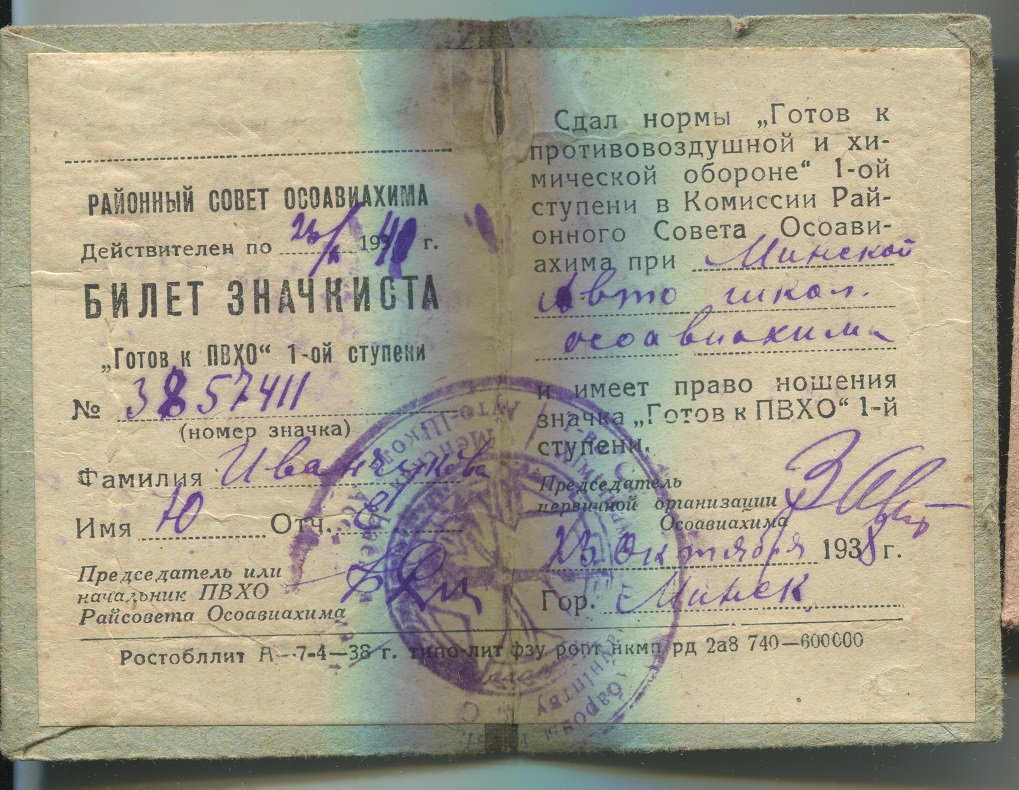 РАЙОННЫЙ СОВЕТ ОСОАВИАХИМА
Действителен по 1940 г.
БИЛЕТ ЗНАЧКИСТА
„Готов к ПВХО“ 1-ой ступени
№ 3857411
(номер значка)
Фамилия
Имя Ю Отч.
Председатель или
начальник ПВХО
Райсовета Осоавиахима
Сдал нормы „Готов к
противовоздушной и хи-
мической обороне“ 1-ой
ступени в Комиссии Рай-
онного Совета Осоави-
ахима при Минской
Авто школ.
осоавиахима
и имеет право ношения
значка „Готов к ПВХО“ 1-й
ступени.
Председатель
первичной организации
Осоавиахима
23 октября 1938 г.
Гор. Минск
Ростобллит А—7-4—38 г. типо-лит фзу ропт нкмп рд 2а8 740—600000